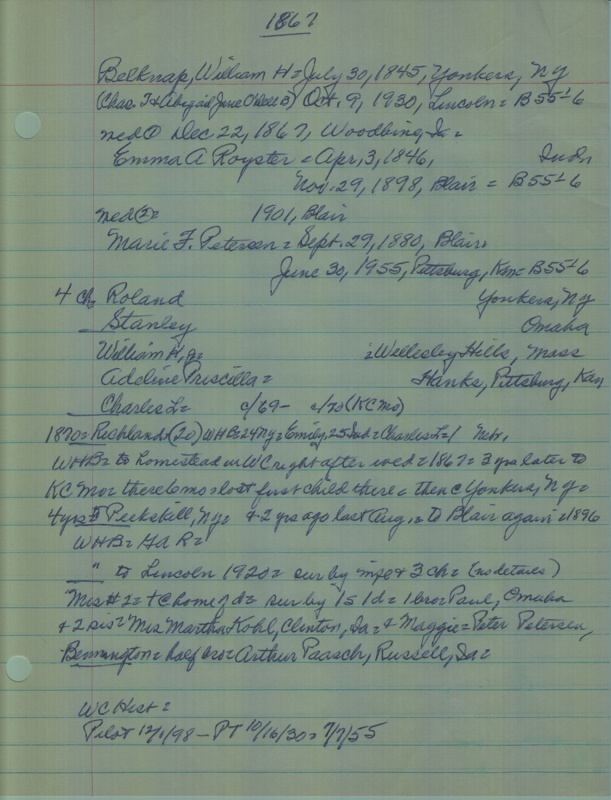 1867
Belknap, William H = July 30, 1845, Yonkers, Ny
(Chas. T & Abigail June Odell B) Oct. 9, 1930, Lincoln = B 55-6
med ① Dec 22, 1867, Woodbine, Ia =
Emma A Royster = Apr, 3, 1846, Ind.
Nov. 29, 1898, Blair = B 55-6
med ② = 1901, Blair
Marie F. Petersen = Sept. 29, 1880, Blair,
June 30, 1955, Pittsburg, Kan = B 55-6
4 ch = Roland Yonkers, Ny
Stanley Omaha
William H, jr = = Wellesley Hills, Mass
Adeline Priscilla = Hanks, Pittsburg, Kan
Charles L = c/69 - c/70 (KC Mo)
1870 = Richland = (20) WHB = 24 Ny = Emily, 25 Ind = Charles L = 1 Nebr.
WHB = to homestead in WC right after wed = 1867 = 3 yrs later to
KC Mo = there 6 mo = lost first child there = then c Yonkers, Ny =
4 yrs = Peekskill, Ny = & 2 yrs ago last Aug. = to Blair again = 1896
WHB = GAR =
" to Lincoln 1920 = sur by & 3 ch = (no details)
Mrs # 2 = + c home of d = sur by 1s 1d = 1 bro = Paul, Omaha
& 2 sis = Mrs Martha Kohl, Clinton, Ia = & Maggie = Peter Petersen,
Bennington = half bro = Arthur Paasch, Russell, Ia =
WC Hist =
Pilot 12/1/98 - PT 10/16/30 = 7/7/55